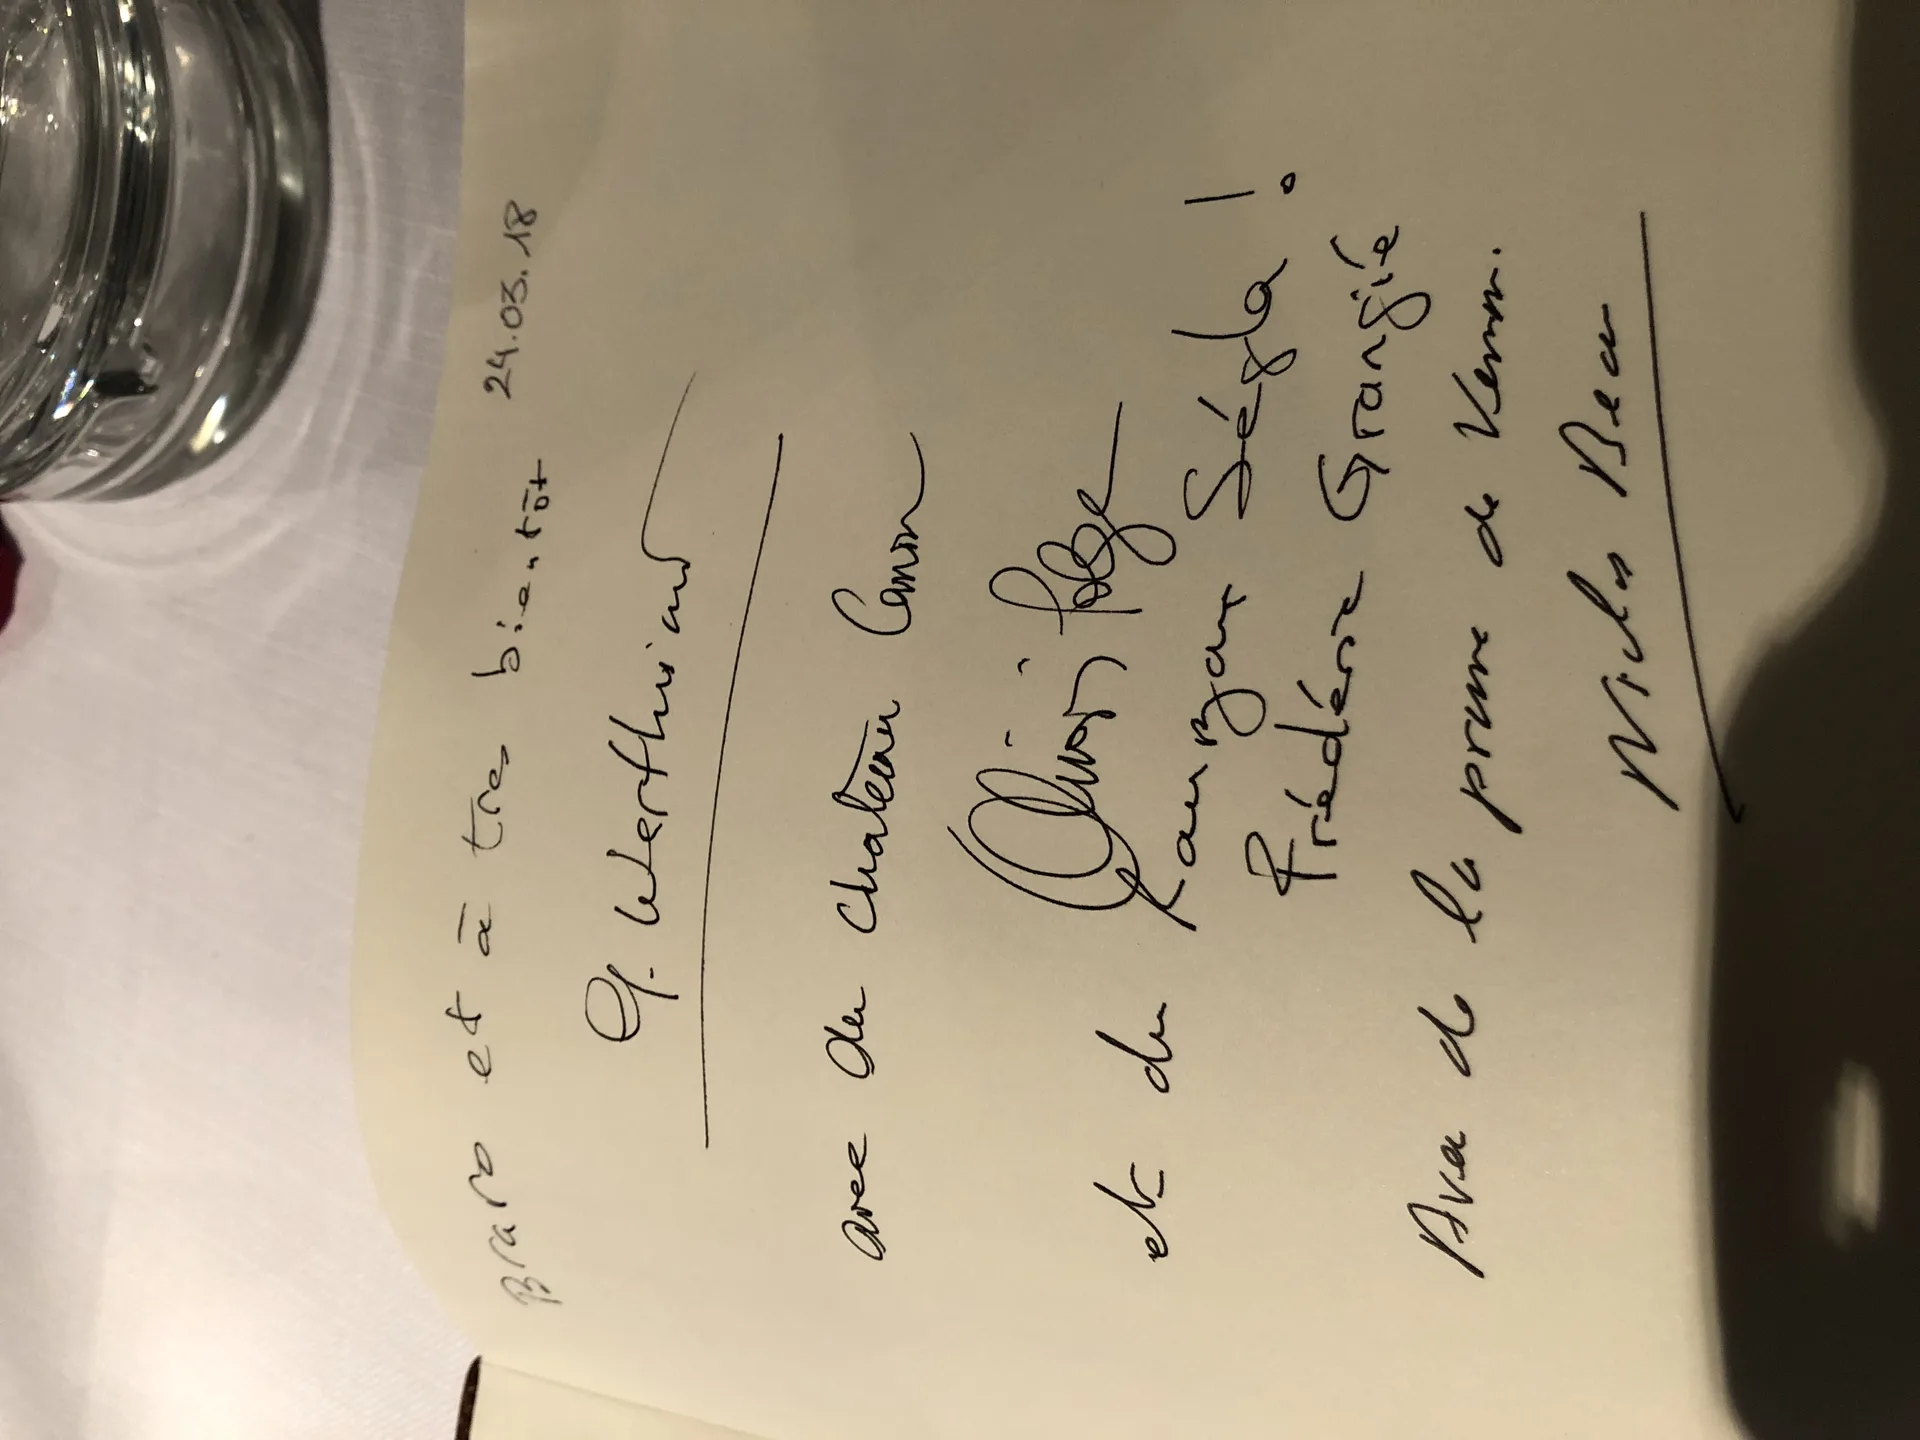 Bravo et à très bientôt 24.03.18
G. Wertheimer
avec du Château Canon
et du Rauzan Ségla !
Frédéric Grangié
Avec de la prune de Vernon.
Nicolas Beau